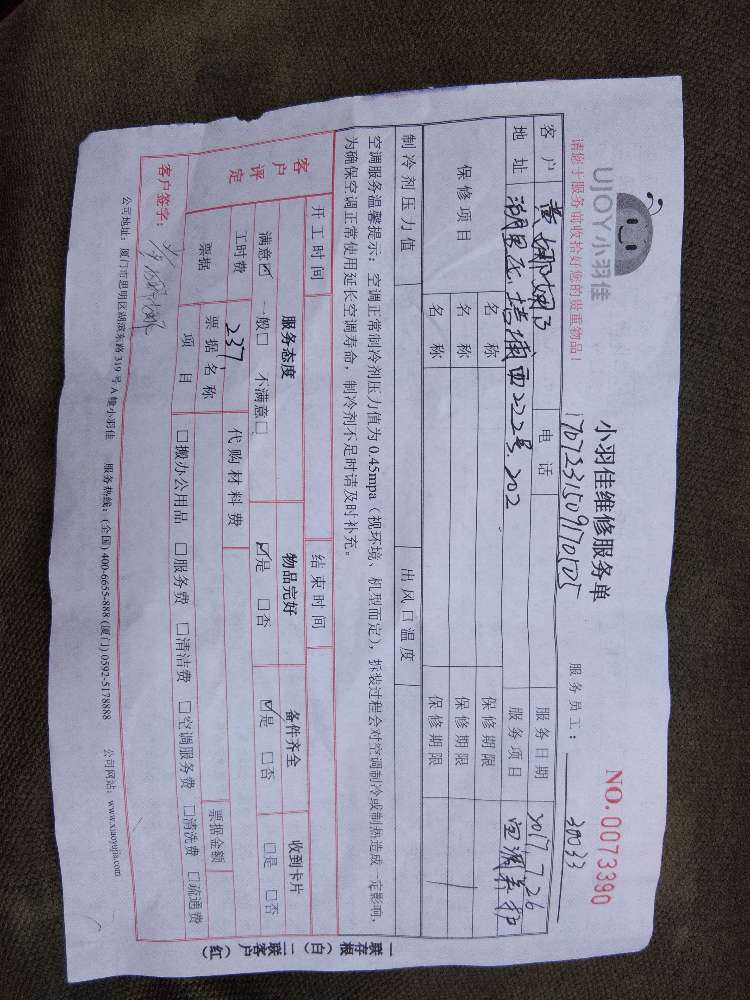 UJOY小羽佳
小羽佳维修服务单
NO.0073390
请您于服务前收拾好您的贵重物品！
170723150970505
服务员工： 30033
客户 黄娜娜 电话 服务日期 2017.7.26
地址 湖里区 西222号.202 服务项目 空调养护
保修项目 名称 保修期限
名称 保修期限
名称 保修期限
制冷剂压力值 出风口温度
空调服务温馨提示：空调正常制冷剂压力值为0.45mpa（视环境、机型而定），拆装过程会对空调制冷或制热造成一定影响，
为确保空调正常使用延长空调寿命，制冷剂不足时请及时补充。
开工时间 结束时间
客户评定 服务态度 物品完好 备件齐全 收到卡片
满意☑ 一般□ 不满意□ ☑是 □否 ☑是 □否 □是 □否
工时费 237 代购材料费
票据 票据名称 票据金额
项目 □搬办公用品 □服务费 □清洁费 □空调服务费 □清洗费 □疏通费
客户签字：
公司地址：厦门市思明区湖滨东路319号A幢小羽佳 服务热线：(全国) 400-6655-888 (厦门) 0592-5178888 公司网站：www.xiaoyujia.com
一联存根（白） 二联客户（红）